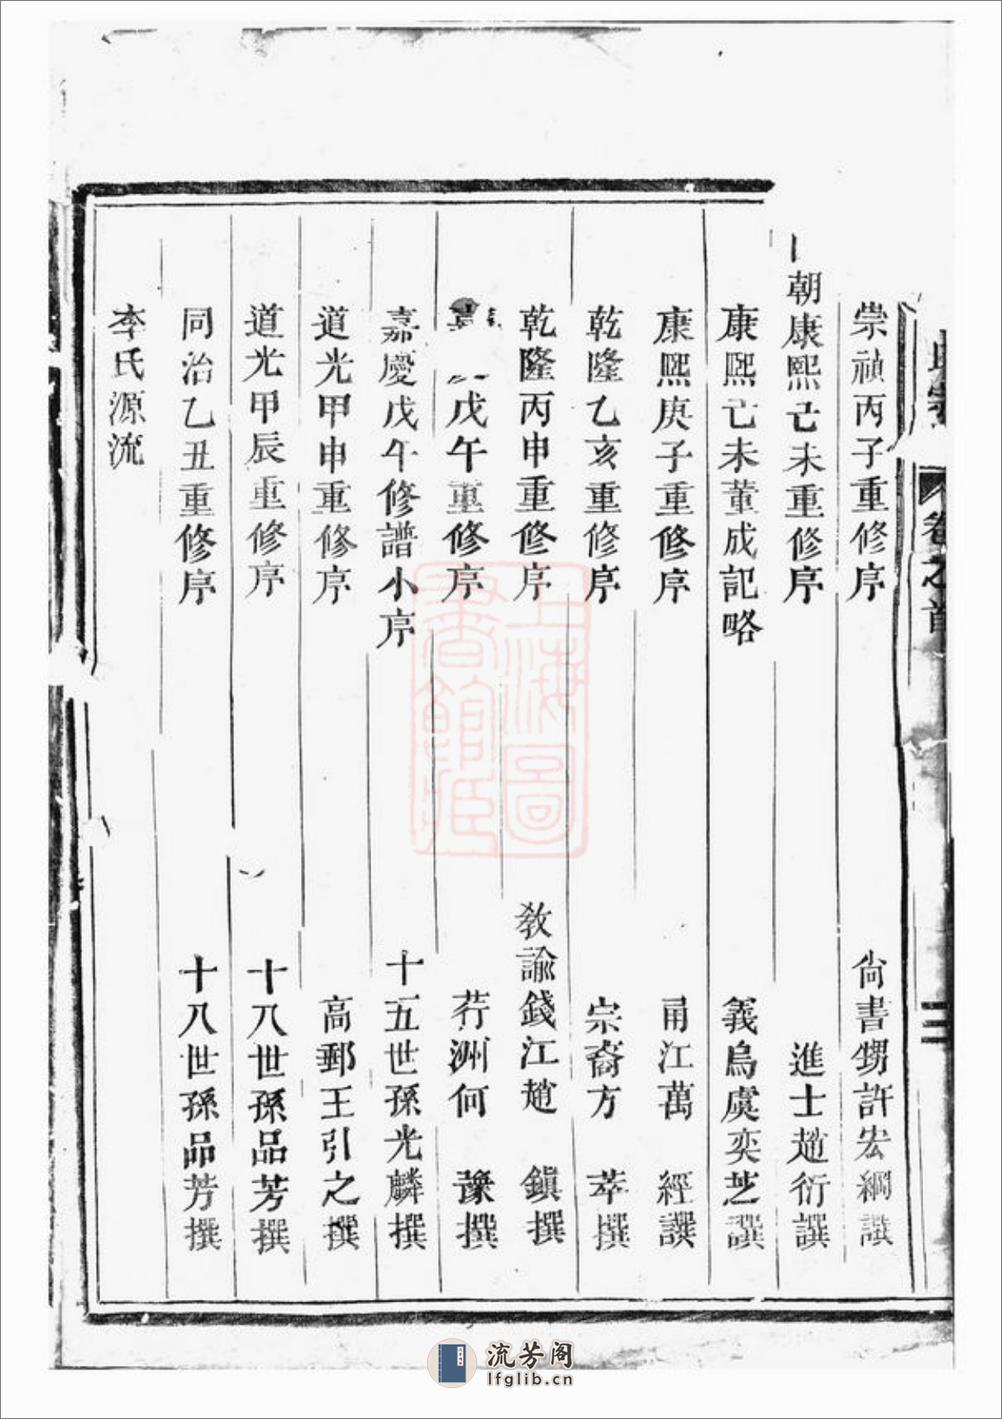 氏宗
卷之首
三
崇禎丙子重修序 尙書甥許宏綱譔
朝康熙己未重修序 進士趙衍譔
康熙己未董成記略 義烏虞奕芝譔
康熙庚子重修序 甬江萬 經譔
乾隆乙亥重修序 宗裔方 萃撰
乾隆丙申重修序 教諭錢江趙 鎮撰
戊午重修序 荇洲何 豫撰
嘉慶戊午修譜小序 十五世孫光麟撰
道光甲申重修序 高郵王引之撰
道光甲辰重修序 十八世孫品芳撰
同治乙丑重修序 十八世孫品芳撰
李氏源流
上海圖
書館藏
流芳阁
lfglib.cn